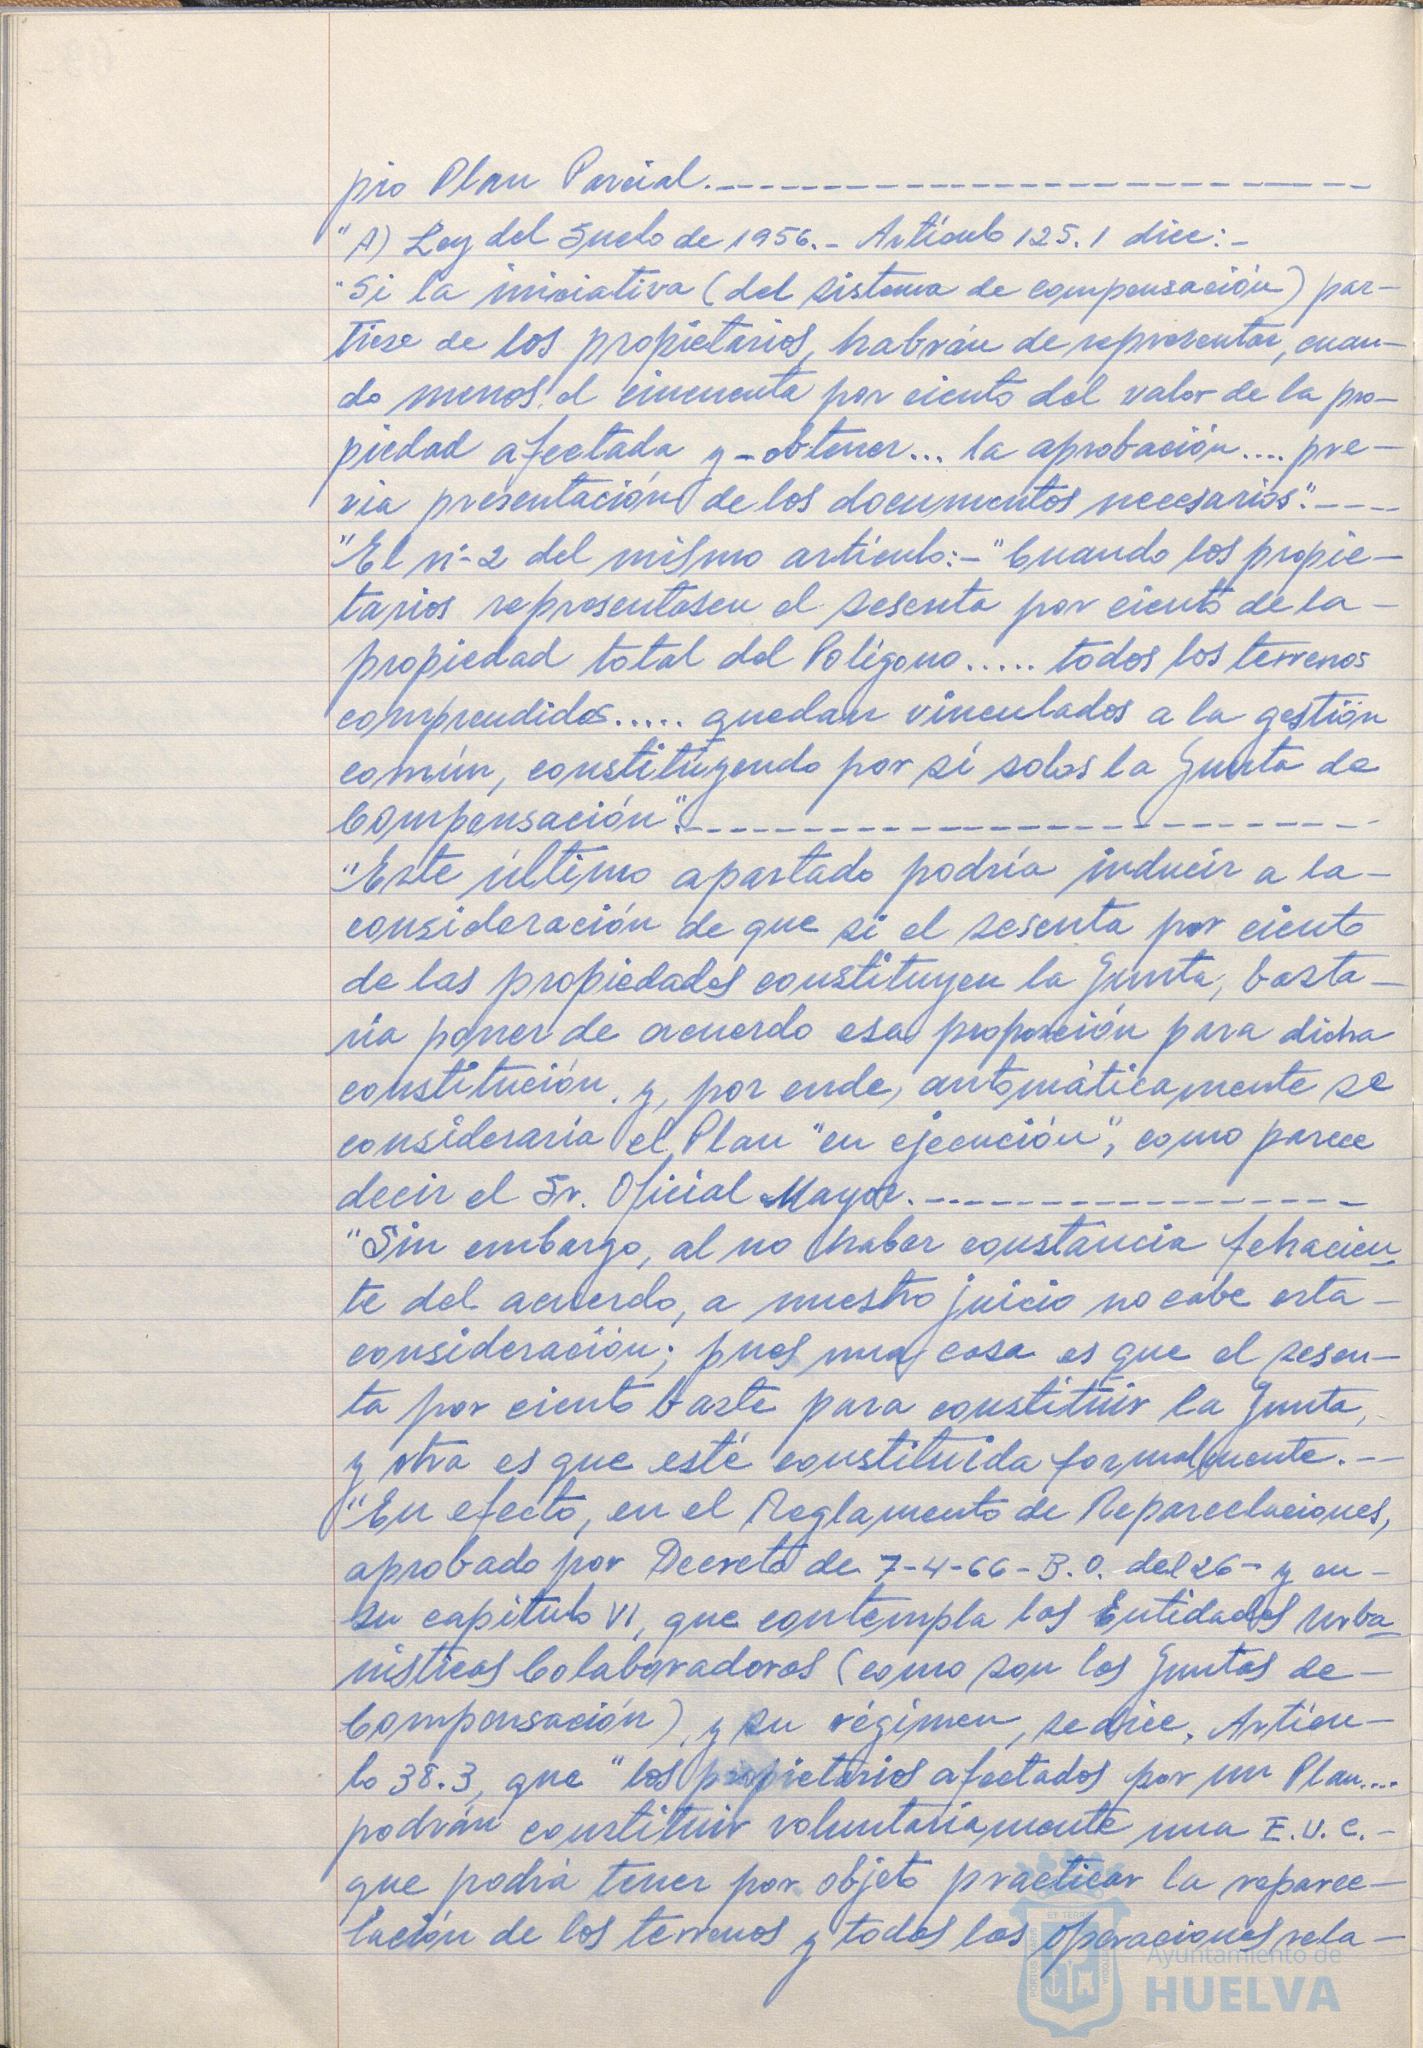 pio Plan Parcial.-------------------------
"A) Ley del Suelo de 1956.- Artículo 125.1 dice:-
"Si la iniciativa (del sistema de compensación) par-
tiese de los propietarios, habrán de representar, cuan-
do menos el cincuenta por ciento del valor de la pro-
piedad afectada y-obtener... la aprobación.... pre-
via presentación de los documentos necesarios".----
"El nº-2 del mismo artículo:-"Cuando los propie-
tarios representasen el sesenta por ciento de la-
propiedad total del Polígono..... todos los terrenos
comprendidos..... quedan vinculados a la gestión
común, constituyendo por sí solos la Junta de
Compensación".-------------------------
"Este último apartado podría inducir a la-
consideración de que si el sesenta por ciento
de las propiedades constituyen la Junta, basta-
ría poner de acuerdo esa proporción para dicha
constitución, y, por ende, automáticamente se
consideraría el Plan "en ejecución", como parece
decir el Sr. Oficial Mayor.-----------------
"Sin embargo, al no haber constancia fehacien-
te del acuerdo, a nuestro juicio no cabe esta-
consideración; pues una cosa es que el sesen-
ta por ciento baste para constituir la Junta,
y otra es que esté constituida formalmente.--
"En efecto, en el Reglamento de Reparcelaciones,
aprobado por Decreto de 7-4-66-B.O. del 26- y en-
su capítulo VI, que contempla las Entidades Urba-
nísticas Colaboradoras (como son las Juntas de-
Compensación), y su régimen, se dice, Artícu-
lo 38.3, que "los propietarios afectados por un Plan....
podrán constituir voluntariamente una E.U.C.-
que podrá tener por objeto practicar la reparce-
lación de los terrenos y todas las operaciones rela-
Ayuntamiento de
HUELVA